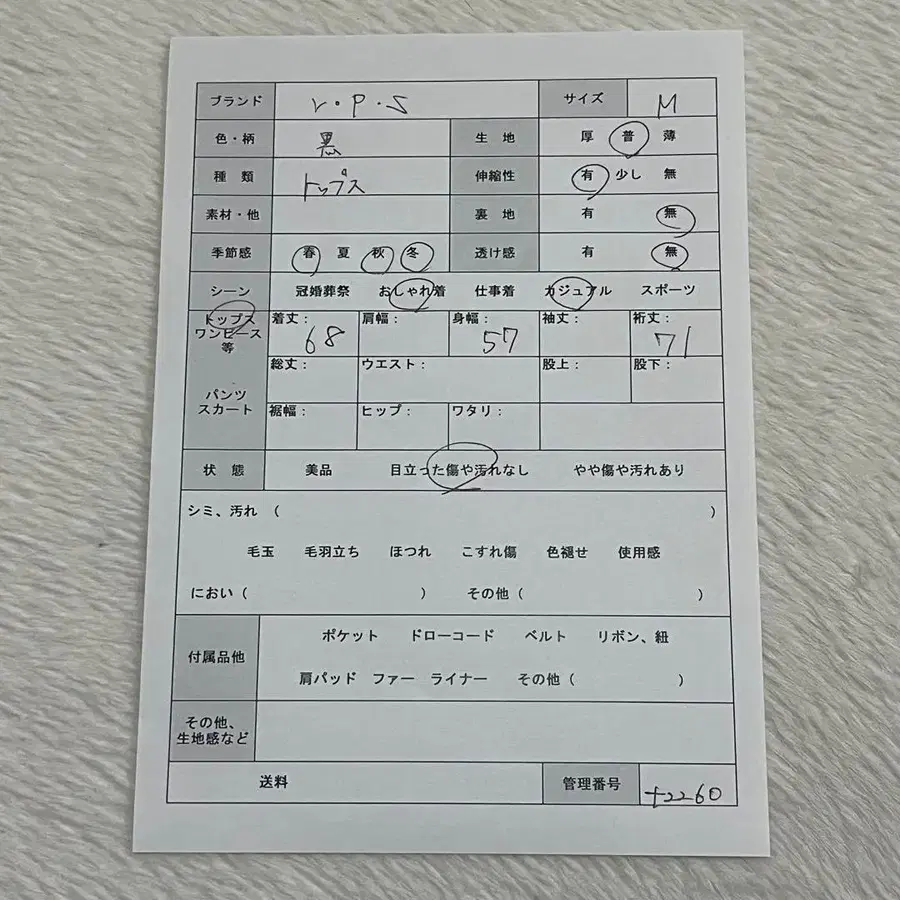 ブランド r・p・s サイズ M
色・柄 黒 生 地 厚 普 薄
種 類 トップス 伸縮性 有 少し 無
素材・他 裏 地 有 無
季節感 春 夏 秋 冬 透け感 有 無
シーン 冠婚葬祭 おしゃれ着 仕事着 カジュアル スポーツ
トップス 着丈: 肩幅: 身幅: 袖丈: 裄丈:
ワンピース 68 57 71
等
総丈: ウエスト: 股上: 股下:
パンツ
スカート 裾幅: ヒップ: ワタリ:
状 態 美品 目立った傷や汚れなし やや傷や汚れあり
シミ、汚れ ( )
毛玉 毛羽立ち ほつれ こすれ傷 色褪せ 使用感
におい( ) その他( )
ポケット ドローコード ベルト リボン、紐
付属品他
肩パッド ファー ライナー その他( )
その他、
生地感など
送料 管理番号 +2260